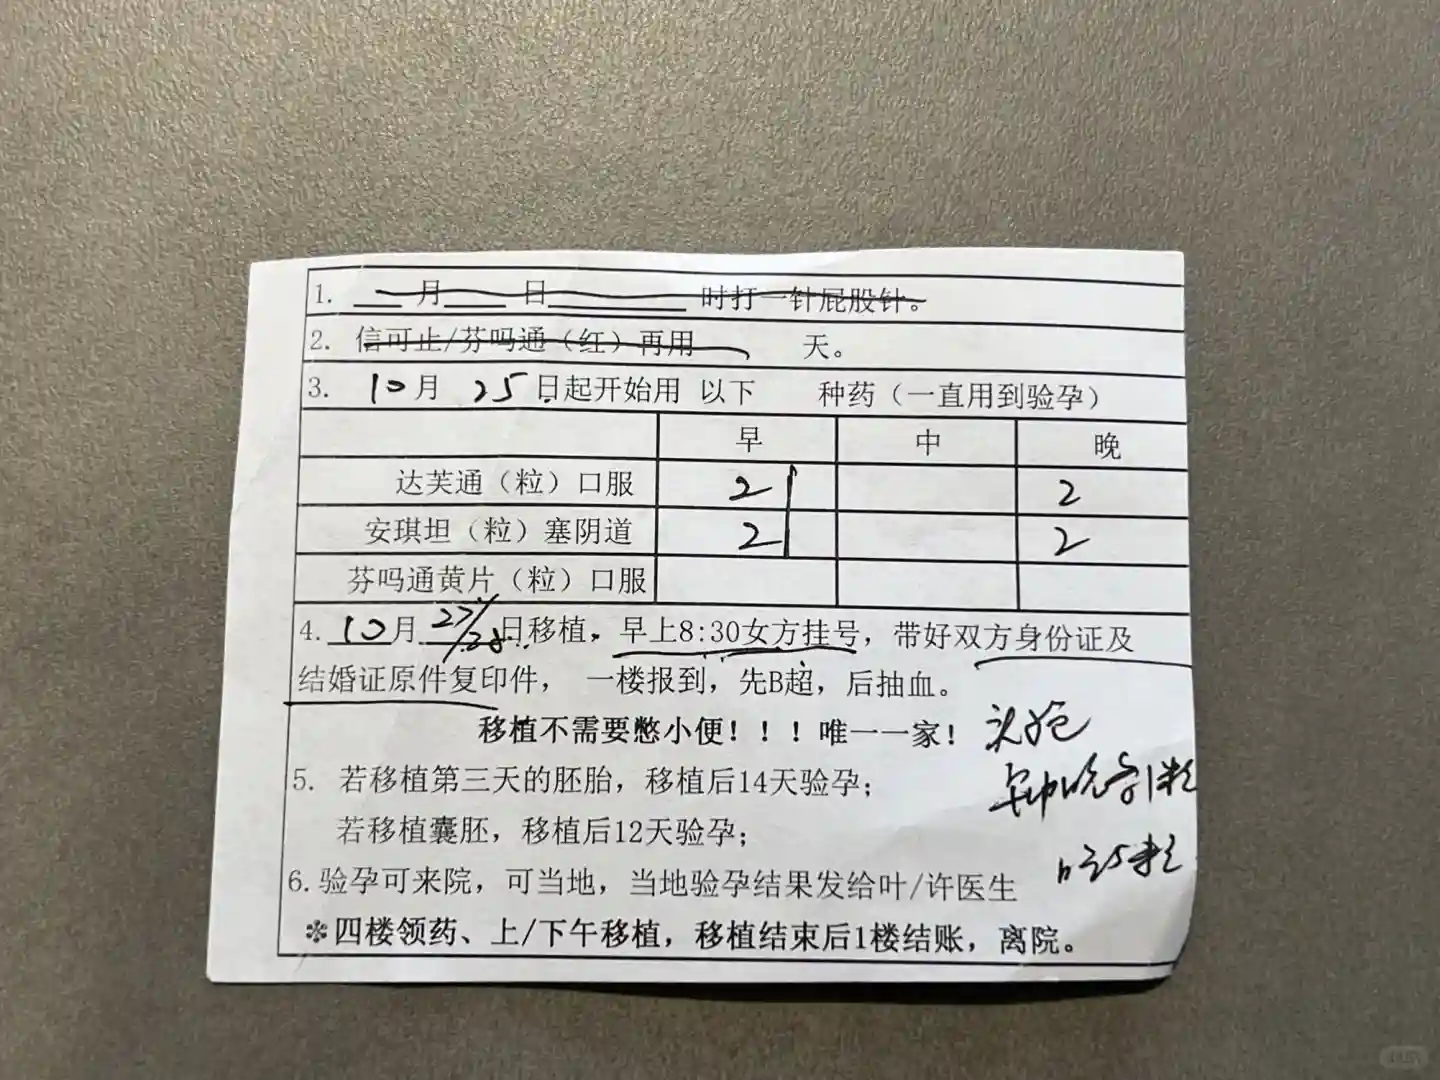 1. ___月___日______时打一针屁股针。
2. 信可止/芬吗通（红）再用 天。
3. 10月 25日起开始用 以下 种药（一直用到验孕）
早 中 晚
达芙通（粒）口服 2 2
安琪坦（粒）塞阴道 2 2
芬吗通黄片（粒）口服
4. 10月27/28日移植，早上8:30女方挂号，带好双方身份证及
结婚证原件复印件， 一楼报到，先B超，后抽血。
移植不需要憋小便！！！唯一一家！
头孢
早中晚各1粒
5. 若移植第三天的胚胎，移植后14天验孕；
若移植囊胚，移植后12天验孕；
6.验孕可来院，可当地，当地验孕结果发给叶/许医生
※四楼领药、上/下午移植，移植结束后1楼结账，离院。